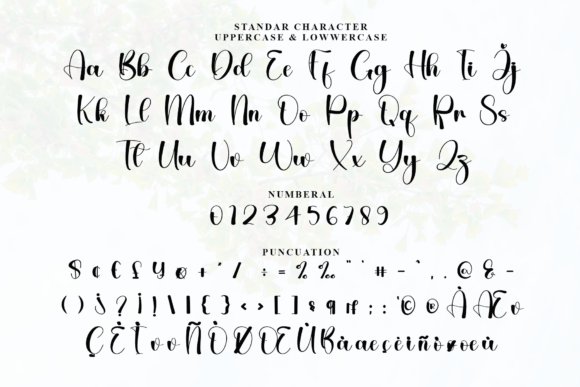 STANDAR CHARACTER
UPPERCASE & LOWWERCASE
Aa Bb Cc Dd Ee Ff Gg Hh Ii Jj
Kk Ll Mm Nn Oo Pp Qq Rr Ss
Tt Uu Vv Ww Xx Yy Zz
NUMBERAL
0123456789
PUNCUATION
$ ¢ € £ ¥ ø + ° / ÷ = % ‰ " ' # - ` , . @ & -
( ) j ? i ! \ | { } < > [ ] § q ¶ : ; ' © ® À Æ
Ç È Ñ Ò Ø Œ Ù ß à æ ç è i ñ ò ø œ ù